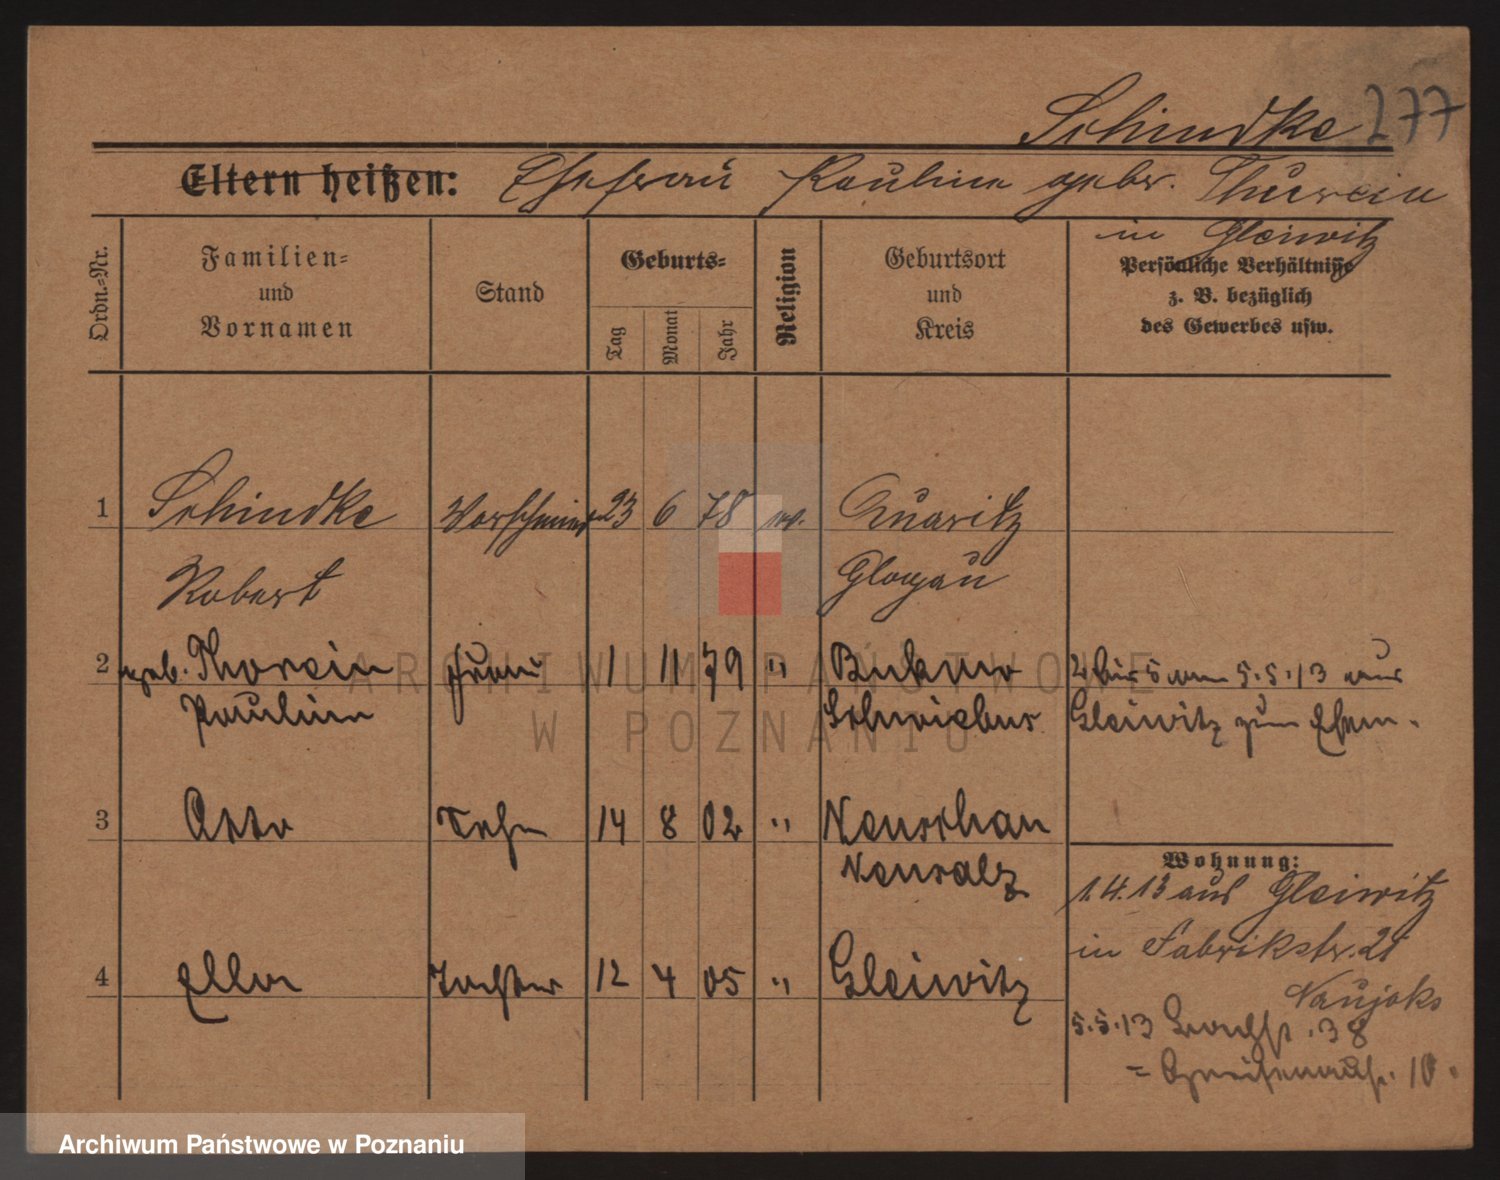 Schindke 277
Eltern heißen: Ehefrau Pauline gebr. Thurein
in Gleiwitz
Ordn.-Nr.
Familien-
und
Vornamen
Stand
Geburts-
Tag
Monat
Jahr
Religion
Geburtsort
und
Kreis
Persönliche Verhältnisse
z. B. bezüglich
des Gewerbes usw.
1 Schindke 23 6 78 ev. Quaritz
Robert Glogau
2 geb. Thorein Frau 1 11 79 " Bukow 2 bis 5 am 5.5.13 aus
Pauline Schwiebus Gleiwitz zum Ehem.
3 Otto Sohn 14 8 02 "
Neusalz
4 Ella Tochter 12 4 05 " Gleiwitz
Wohnung:
1.4.13 aus Gleiwitz
in Fabrikstr. 21
Naujoks
5.5.13 38
= Gneisenaustr. 10.
ARCHIWUM PAŃSTWOWE
W POZNANIU
Archiwum Państwowe w Poznaniu